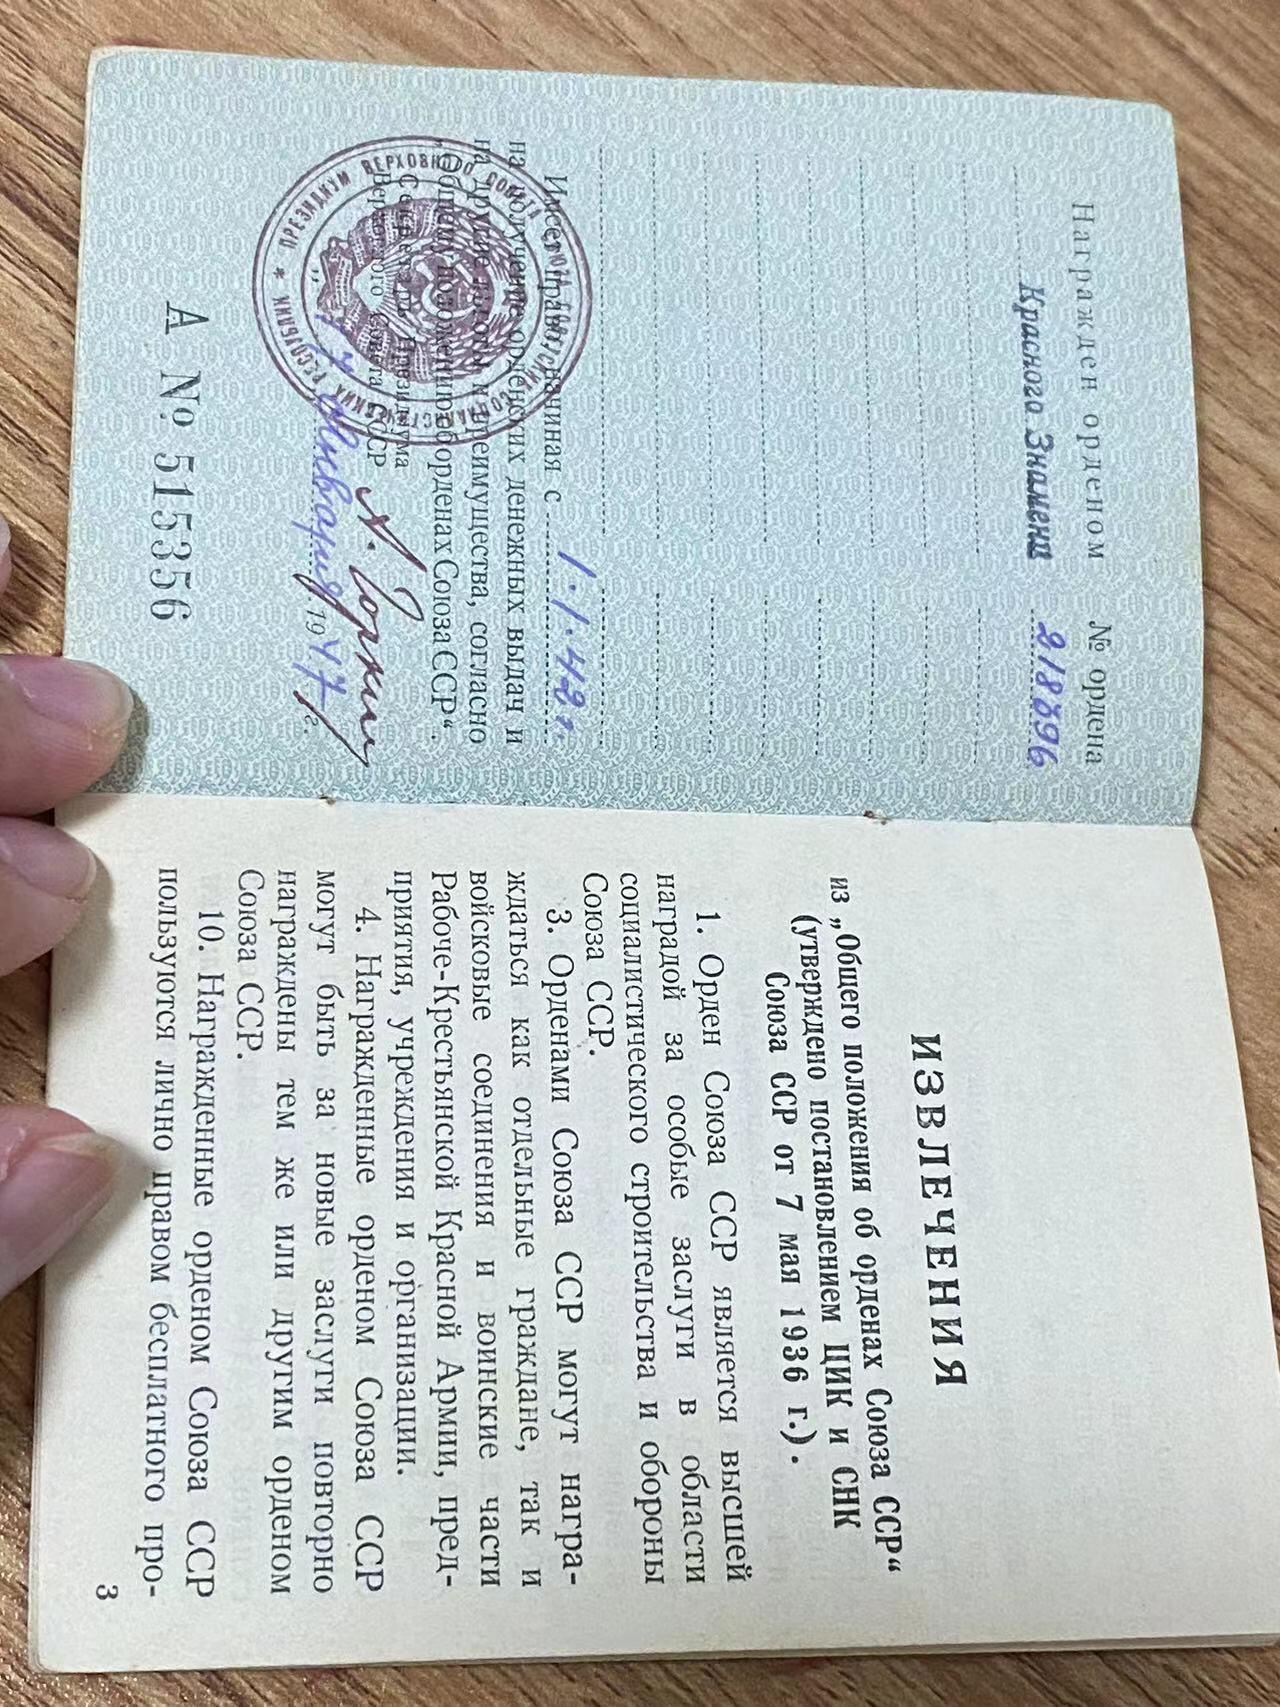 Награжден орденом № ордена
Красного Знамени 218896
Имеет право начиная с 1.1.42 г.
на получение орденских денежных выдач и
на другие льготы и преимущества, согласно
„Общему положению об орденах Союза ССР“.
Секретарь Президиума
Верховного Совета СССР А. Горкин
„17“ Января 1947 г.
А № 515356
ПРЕЗИДИУМ ВЕРХОВНОГО СОВЕТА СОЮЗА СОВЕТСКИХ СОЦИАЛИСТИЧЕСКИХ РЕСПУБЛИК
ИЗВЛЕЧЕНИЯ
из „Общего положения об орденах Союза ССР“
(утверждено постановлением ЦИК и СНК
Союза ССР от 7 мая 1936 г.).
1. Орден Союза ССР является высшей
наградой за особые заслуги в области
социалистического строительства и обороны
Союза ССР.
3. Орденами Союза ССР могут награ-
ждаться как отдельные граждане, так и
войсковые соединения и воинские части
Рабоче-Крестьянской Красной Армии, пред-
приятия, учреждения и организации.
4. Награжденные орденом Союза ССР
могут быть за новые заслуги повторно
награждены тем же или другим орденом
Союза ССР.
10. Награжденные орденом Союза ССР
пользуются лично правом бесплатного про-
3